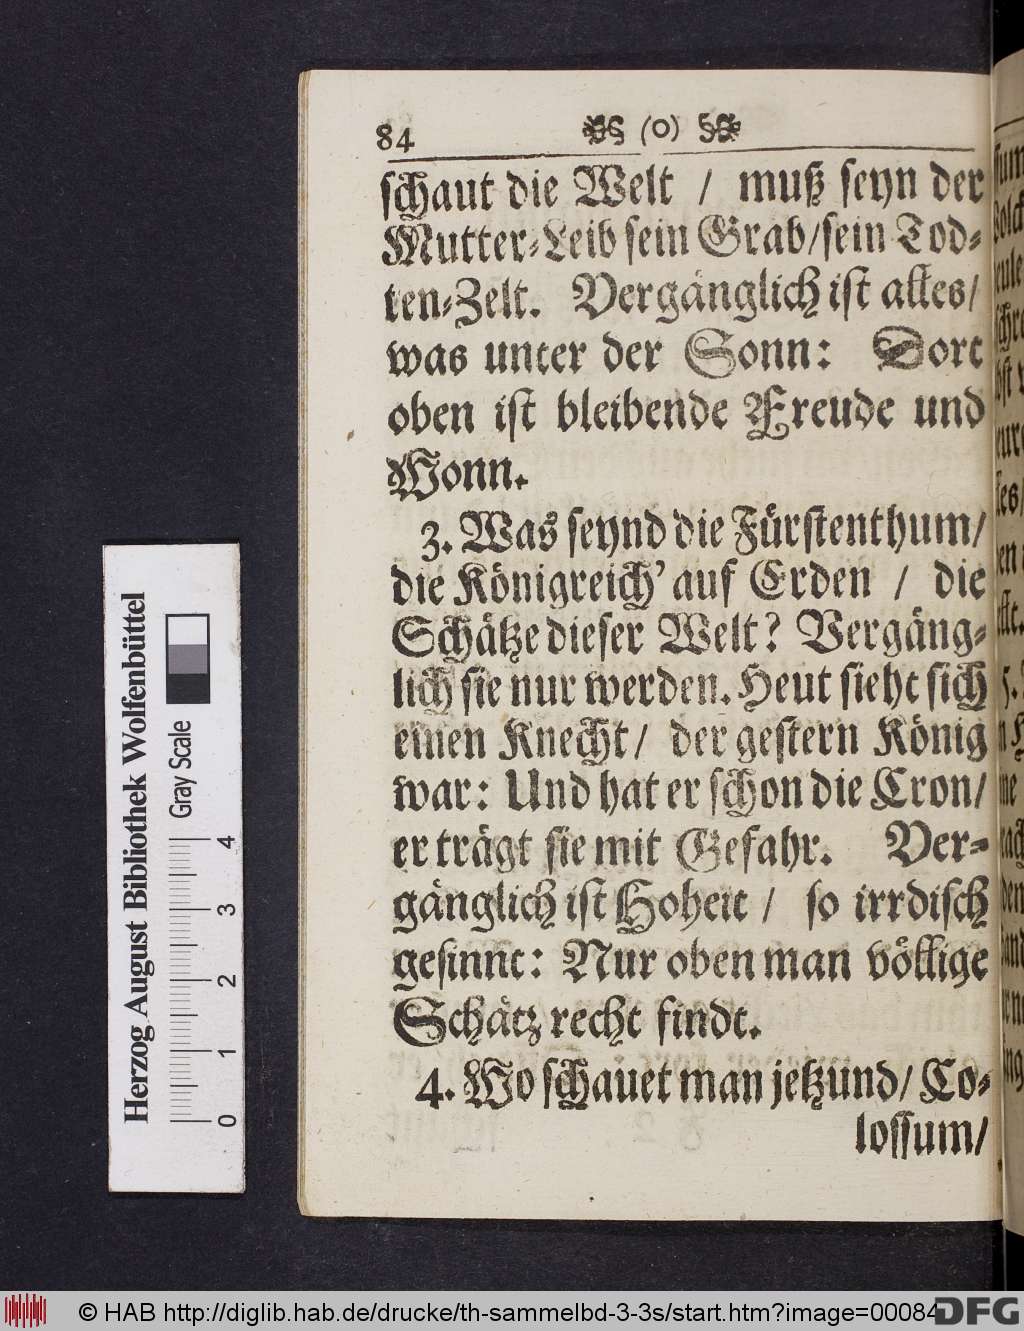 84 (o)
schaut die Welt / muß seyn der
Mutter-Leib sein Grab/sein Tod-
ten-Zelt. Vergänglich ist alles/
was unter der Sonn: Dort
oben ist bleibende Freude und
Wonn.
3. Was seynd die Fürstenthum/
die Königreich' auf Erden / die
Schätze dieser Welt? Vergäng-
lich sie nur werden. Heut sieht sich
einen Knecht/ der gestern König
war: Und hat er schon die Cron/
er trägt sie mit Gefahr. Ver-
gänglich ist Hoheit / so irrdisch
gesinnt: Nur oben man völlige
Schätz recht findt.
4. Wo schauet man jetzund/ Co-
lossum/
Herzog August Bibliothek Wolfenbüttel
Gray Scale
0 1 2 3 4
© HAB http://diglib.hab.de/drucke/th-sammelbd-3-3s/start.htm?image=00084
DFG